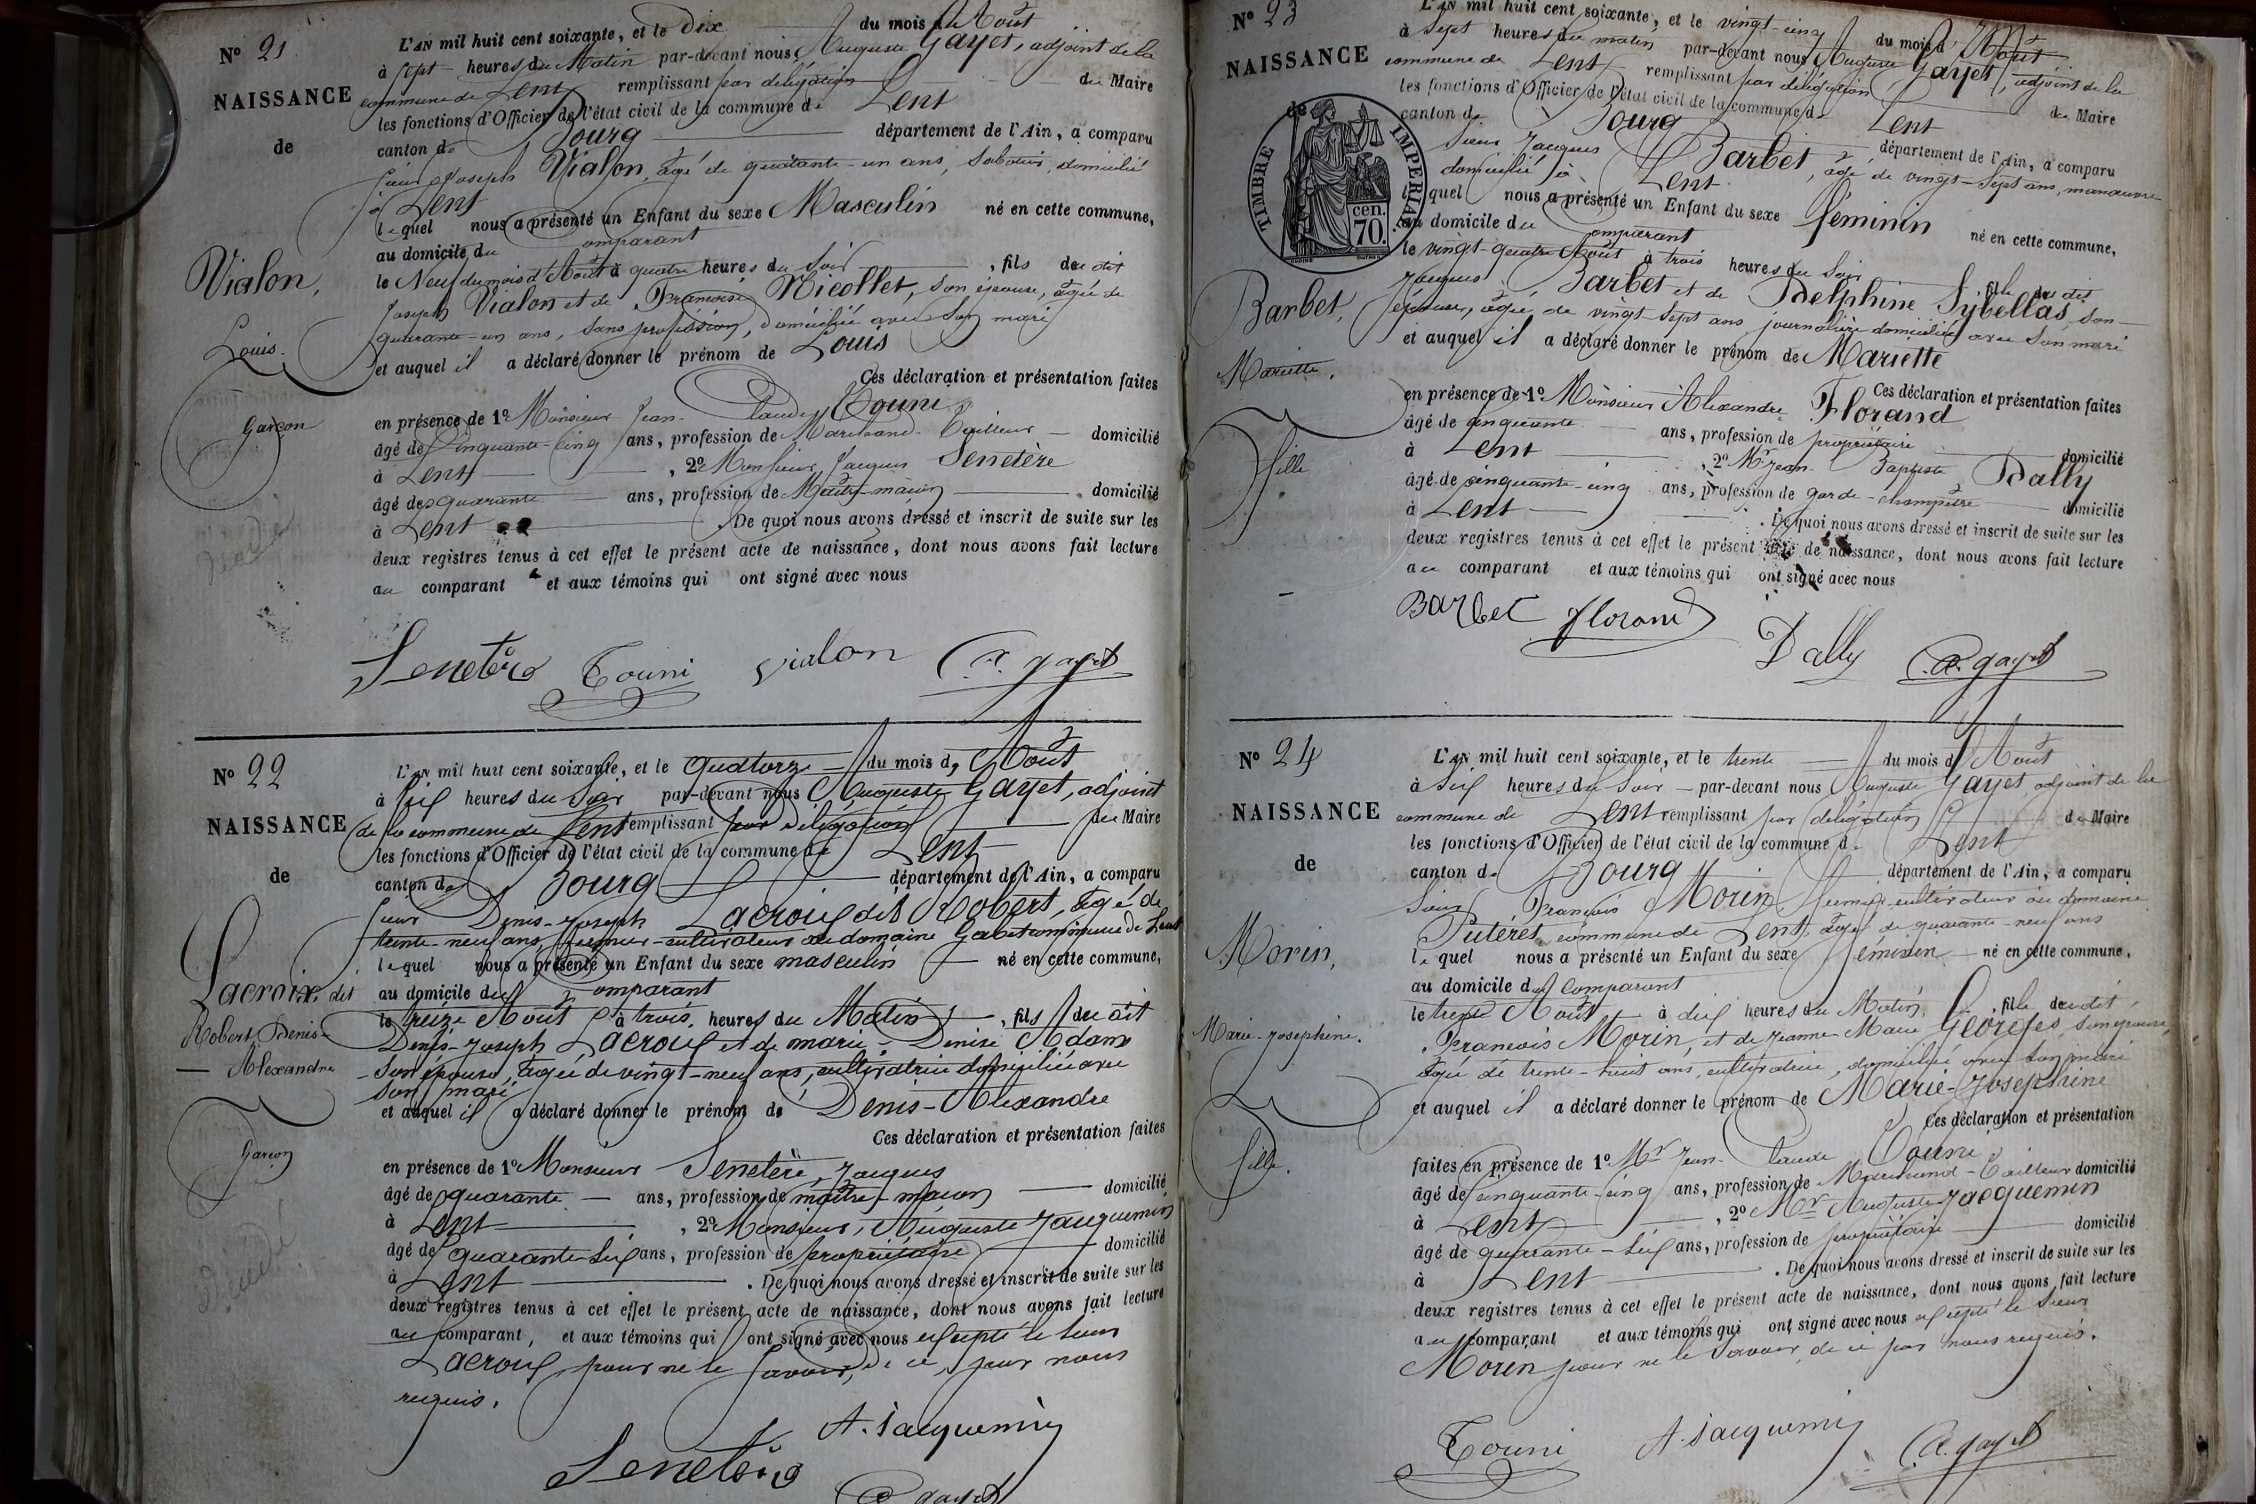 N° 21
NAISSANCE
de
Vialon,
Louis.
Garçon
L'AN mil huit cent soixante, et le Dix du mois d'Août
à sept heures du Matin par-devant nous Auguste Gayet, adjoint de la
commune de Lent remplissant par délégation de Maire
les fonctions d'Officier de l'état civil de la commune de Lent
canton de Bourg département de l'Ain, a comparu
sieur Joseph Vialon, âgé de quarante-un ans, sabotier, domicilié
à Lent
lequel nous a présenté un Enfant du sexe Masculin né en cette commune,
au domicile du comparant
le Neuf du mois d'Août à quatre heures du soir, fils du dit
Joseph Vialon et de Françoise Nicollet, son épouse, âgée de
quarante-un ans, sans profession, domiciliée avec son mari
et auquel il a déclaré donner le prénom de Louis
Ces déclaration et présentation faites
en présence de 1° Monsieur Jean-Claude Touni
âgé de Cinquante-cinq ans, profession de Marchand-Tailleur domicilié
à Lent, 2° Monsieur Jacques Senetère
âgé de quarante ans, profession de Maître-maçon domicilié
à Lent. De quoi nous avons dressé et inscrit de suite sur les
deux registres tenus à cet effet le présent acte de naissance, dont nous avons fait lecture
au comparant et aux témoins qui ont signé avec nous
Senetère Touni vialon A. gayet
N° 22
NAISSANCE
de
Lacroix dit
Robert, Denis-
Alexandre
Garçon
L'AN mil huit cent soixante, et le quatorze du mois d'Août
à six heures du Soir par-devant nous Auguste Gayet, adjoint
de la commune de Lent remplissant par délégation de Maire
les fonctions d'Officier de l'état civil de la commune de Lent
canton de Bourg département de l'Ain, a comparu
sieur Denis-Joseph Lacroix dit Robert, âgé de
trente-neuf ans fermier-cultivateur au domaine Gabet commune de Lent
lequel nous a présenté un Enfant du sexe masculin né en cette commune,
au domicile du comparant
le treize Août à trois heures du Matin, fils du dit
Denis-Joseph Lacroix et de marie-Denise Adam
son épouse, âgée de vingt-neuf ans, cultivatrice domiciliée avec
son mari
et auquel il a déclaré donner le prénom de Denis-Alexandre
Ces déclaration et présentation faites
en présence de 1° Monsieur Senetère, Jacques
âgé de quarante ans, profession de maître-maçon domicilié
à Lent, 2° Monsieur, Auguste Jacquemin
âgé de quarante-six ans, profession de propriétaire domicilié
à Lent. De quoi nous avons dressé et inscrit de suite sur les
deux registres tenus à cet effet le présent acte de naissance, dont nous avons fait lecture
au comparant, et aux témoins qui ont signé avec nous excepté le sieur
Lacroix pour ne le savoir, de ce par nous
requis.
A. Jacquemin
Senetère
A. gayet
N° 23
NAISSANCE
de
TIMBRE IMPERIAL
70. cen.
Barbet,
Mariette.
Fille
L'AN mil huit cent soixante, et le vingt-cinq du mois d'Août
à Sept heures du matin par-devant nous Auguste Gayet, adjoint de la
commune de Lent remplissant par délégation de Maire
les fonctions d'Officier de l'état civil de la commune de Lent
canton de Bourg département de l'Ain, a comparu
Sieur Jacques Barbet, âgé de vingt-sept ans, manœuvre
domicilié à Lent
lequel nous a présenté un Enfant du sexe féminin né en cette commune,
au domicile du comparant
le vingt-quatre Août à trois heures du Soir fille du dit
Jacques Barbet et de Delphine Sybellas, son
épouse, âgée de vingt-sept ans journalière domiciliée avec son mari
et auquel il a déclaré donner le prénom de Mariette
Ces déclaration et présentation faites
en présence de 1° Monsieur Alexandre Florand
âgé de cinquante ans, profession de propriétaire domicilié
à Lent, 2° Mr Jean Baptiste Dally
âgé de cinquante-cinq ans, profession de garde-champêtre domicilié
à Lent. De quoi nous avons dressé et inscrit de suite sur les
deux registres tenus à cet effet le présent acte de naissance, dont nous avons fait lecture
au comparant et aux témoins qui ont signé avec nous
Barbet florand
Dally A. gayet
N° 24
NAISSANCE
de
Morin,
Marie-Josephine.
fille.
L'AN mil huit cent soixante, et le trente du mois d'Août
à six heures du Soir par-devant nous Auguste Gayet adjoint de la
commune de Lent remplissant par délégation de Maire
les fonctions d'Officier de l'état civil de la commune de Lent
canton de Bourg département de l'Ain, a comparu
Sieur François Morin fermier cultivateur au domaine
Putéret commune de Lent, âgé de quarante-neuf ans
lequel nous a présenté un Enfant du sexe féminin né en cette commune,
au domicile du Comparant
le trente Août à dix heures du Matin, fille du dit
François Morin, et de Jeanne-Marie Georges, son épouse,
âgée de trente-huit ans, cultivatrice, domiciliée avec son mari
et auquel il a déclaré donner le prénom de Marie-Josephine
Ces déclaration et présentation
faites en présence de 1° Mr Jean-Claude Touni
âgé de cinquante-cinq ans, profession de Marchand-Tailleur domicilié
à Lent, 2° Mr Auguste Jacquemin
âgé de quarante-six ans, profession de propriétaire domicilié
à Lent. De quoi nous avons dressé et inscrit de suite sur les
deux registres tenus à cet effet le présent acte de naissance, dont nous avons fait lecture
au comparant et aux témoins qui ont signé avec nous excepté le sieur
Morin pour ne le savoir, de ce par nous requis.
Touni A. Jacquemin A. gayet